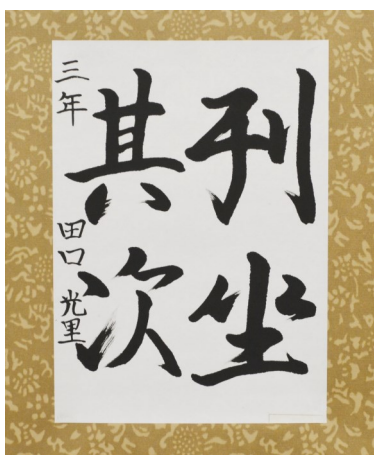 列坐
其次
三年 田口 光里